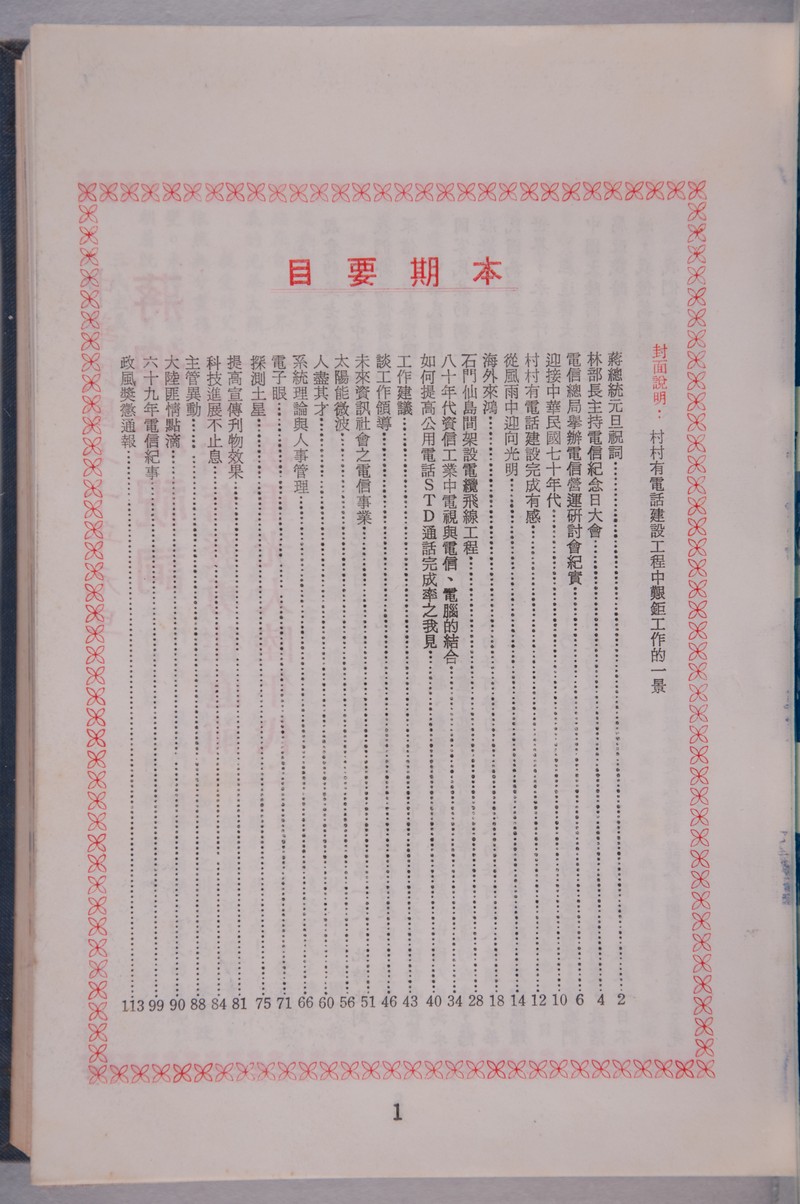 本期要目
封面說明：村村有電話建設工程中艱鉅工作的一景
蔣總統元旦祝詞……2
林部長主持電信紀念日大會……4
電信總局舉辦電信營運研討會紀實……6
迎接中華民國七十年代……10
村村有電話建設完成有感……12
從風雨中迎向光明……14
海外來鴻……18
石門仙島間架設電纜飛線工程……28
八十年代資信工業中電視與電信、電腦的結合……34
如何提高公用電話STD通話完成率之我見……40
工作建議……43
談工作領導……46
未來資訊社會之電信事業……51
太陽能微波……56
人盡其才……60
系統理論與人事管理……66
電子眼……71
探測土星……75
提高宣傳刋物效果……81
科技進展不止息……84
主管異動……88
大陸匪情點滴……90
六十九年電信紀事……99
政風獎懲通報……113
1